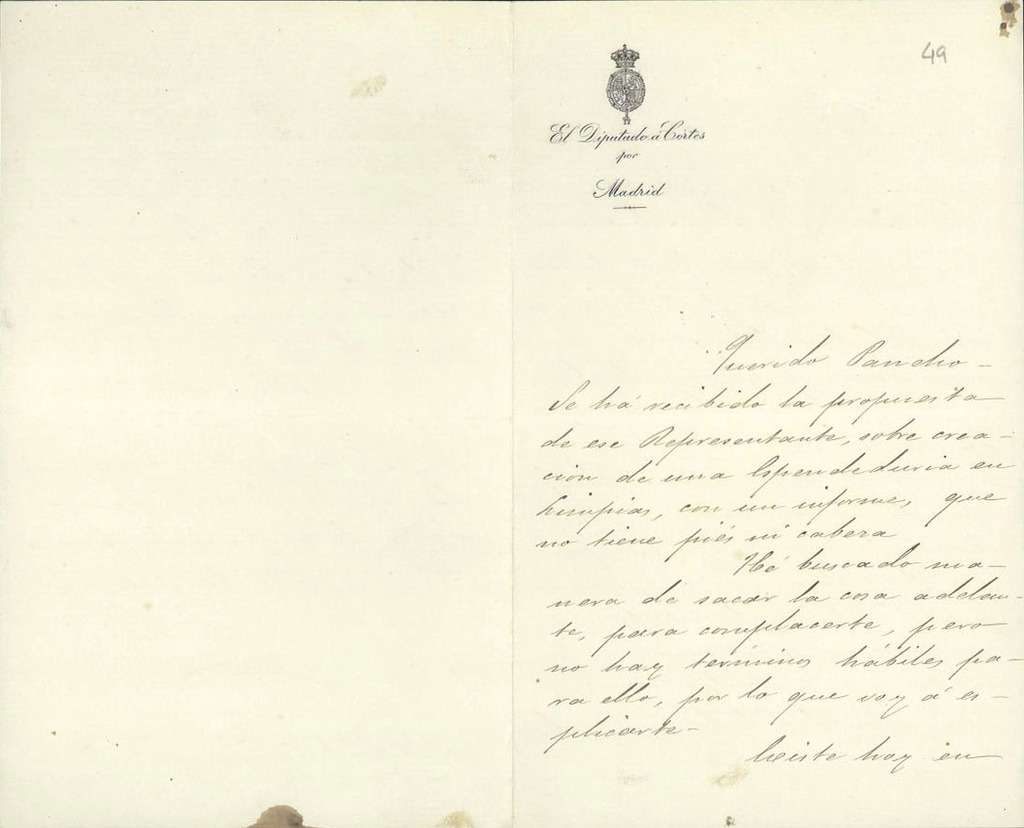 49
El Diputado á Cortes
por
Madrid
Querido Pancho -
Se há recibido la propuesta
de ese Representante, sobre crea-
cion de una Espendeduria en
Limpias, con un informe, que
no tiene piés ni cabeza
Hé buscado ma-
nera de sacar la cosa adelan-
te, para complacerte, pero
no hay términos hábiles pa-
ra ello, por lo que voy á es-
plicarte-
Existe hoy en